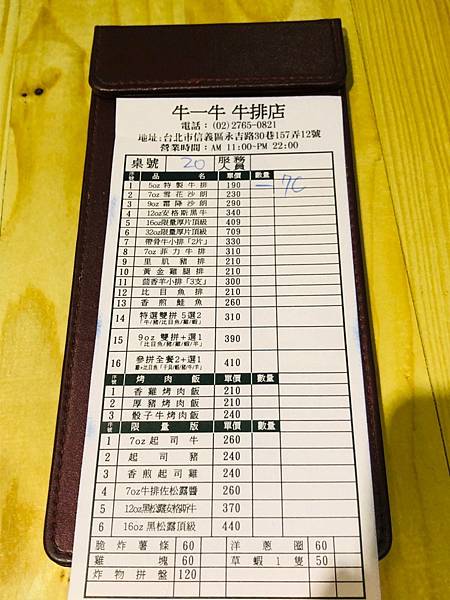 牛一牛 牛排店
電話：(02)2765-0821
地址:台北市信義區永吉路30巷157弄12號
營業時間：AM 11:00~PM 22:00
桌號 20 服務人員
序號 品名 單價 數量
1 5oz特製牛排 190 一 7C
2 7oz雪花沙朗 230
3 9oz霜降沙朗 290
4 12oz安格斯黑牛 340
5 16oz限量厚片頂級 409
6 32oz限量厚片頂級 709
7 帶骨牛小排「2片」 330
8 7oz菲力牛排 310
9 里肌豬排 210
10 黃金雞腿排 210
11 茴香羊小排「3支」 300
12 比目魚排 210
13 香煎鮭魚 260
14 特選雙拼 5選2 310
「牛/豬/比目魚/雞/蝦」
15 9oz 雙拼+選1 390
「比目魚/豬/雞/蝦/羊」
16 參拼全餐2+選1 410
雞+比目魚「干貝/蝦/豬/牛/羊」
序號 烤肉飯 單價 數量
1 香雞烤肉飯 210
2 厚豬烤肉飯 210
3 骰子牛烤肉飯 240
序號 限量版 單價 數量
1 7oz起司牛 260
2 起司豬 240
3 香煎起司雞 240
4 7oz牛排佐松露醬 260
5 12oz黑松露安格斯牛 370
6 16oz黑松露頂級 440
脆炸薯條 60 洋蔥圈 60
雞塊 60 草蝦1隻 50
炸物拼盤 120